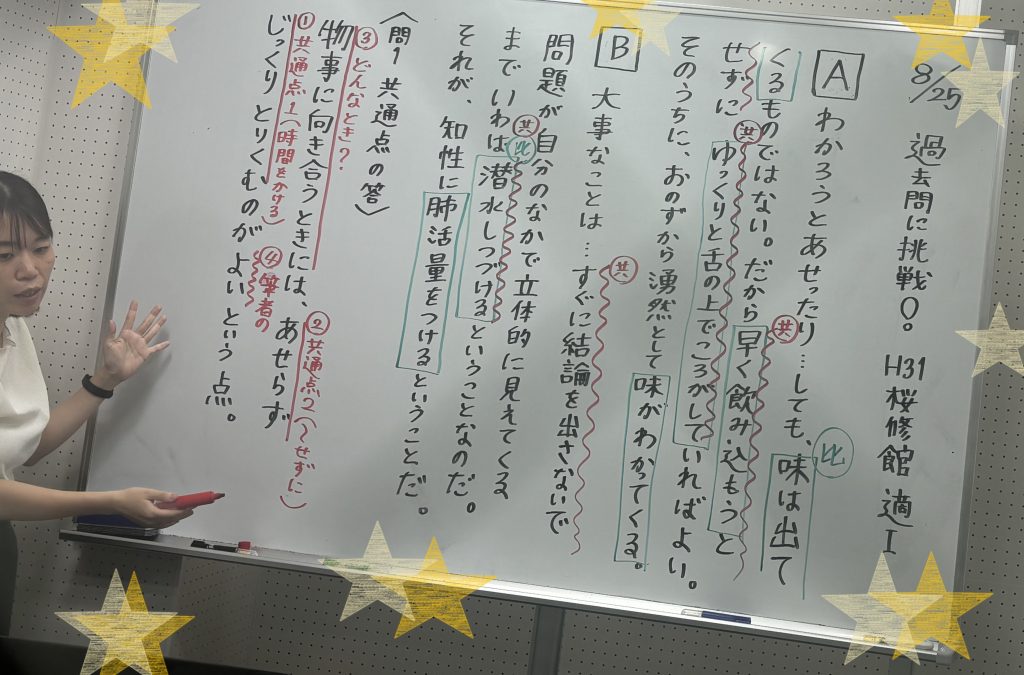 8/25 過去問に挑戦○。 H31 桜修館 適Ⅰ
A わかろうとあせったり…しても、味は出て
くるものではない。だから早く飲み込もうと
せずにゆっくりと舌の上でころがしていればよい。
そのうちに、おのずから湧然として味がわかってくる。
比
共
共
B 大事なことは…すぐに結論を出さないで
問題が自分のなかで立体的に見えてくる
までいわば潜水しつづけるということなのだ。
それが、知性に肺活量をつけるということだ。
共
共
比
〈問1 共通点の答〉
③どんなとき?
物事に向き合うときには、あせらず
②共通点2(〜せずに)
①共通点1(時間をかける)
じっくりとりくむのがよいという点。
④筆者の